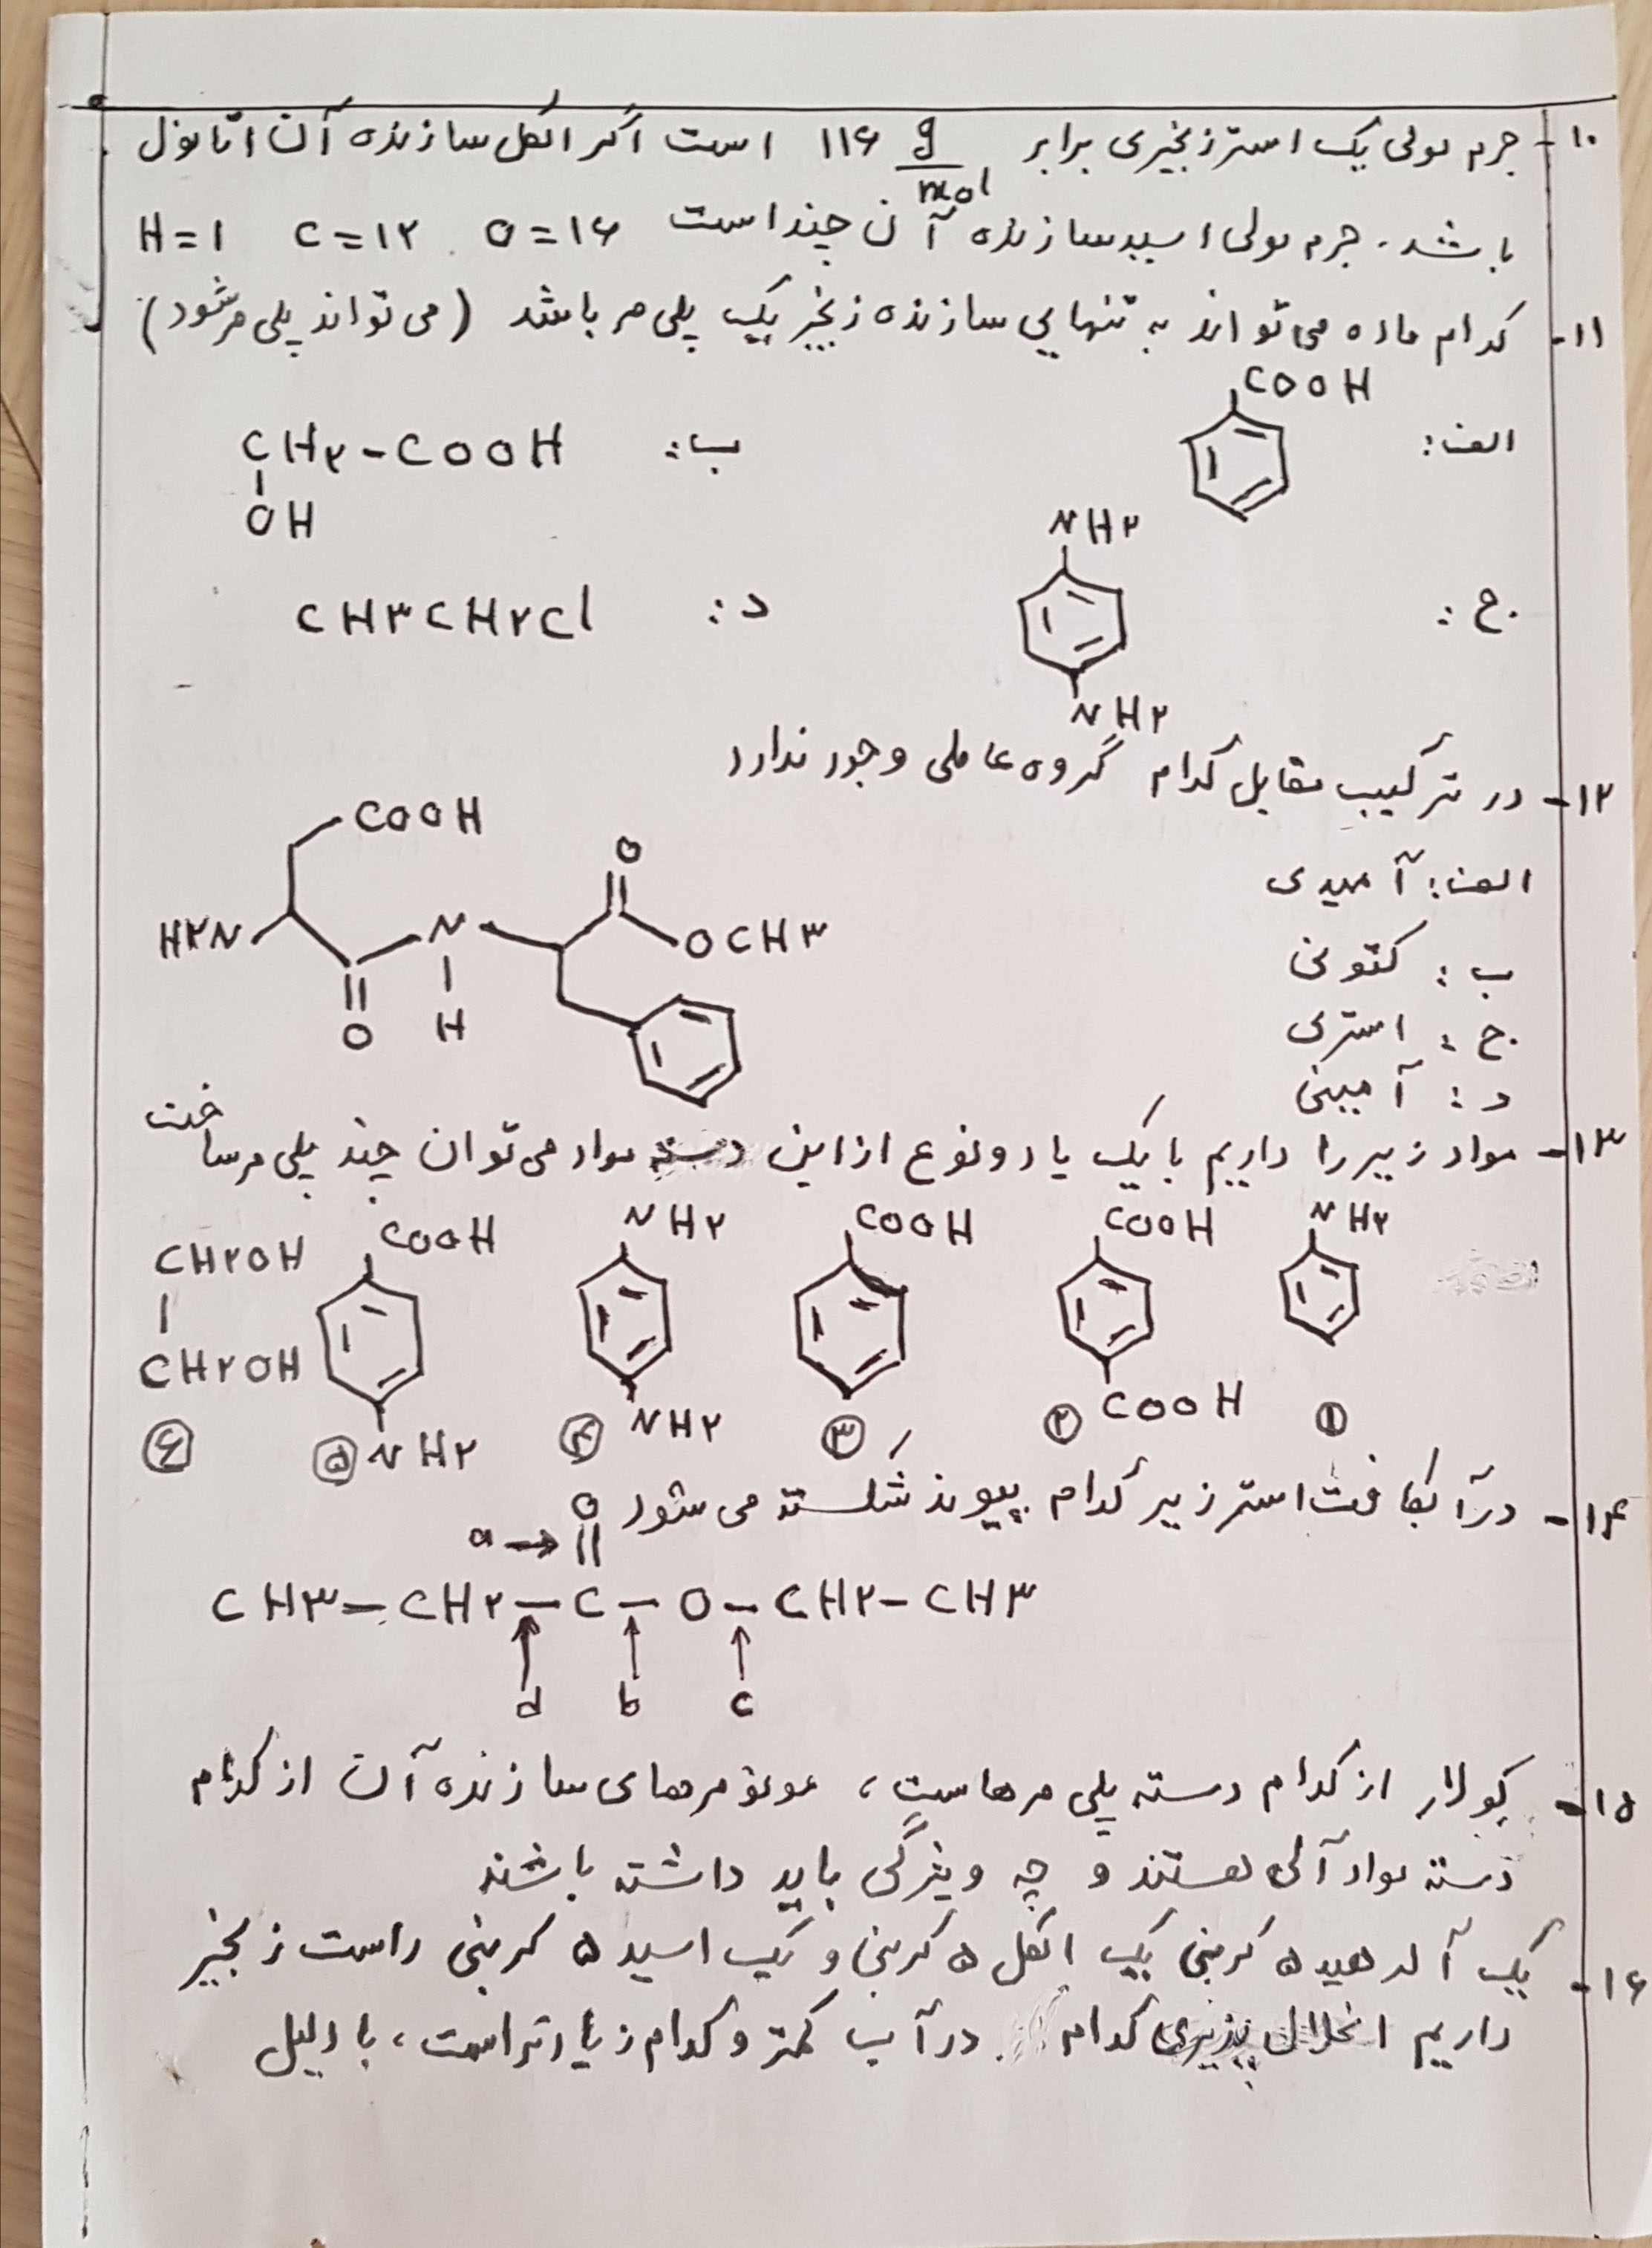 ۱۰- جرم مولی یک استر زنجیری برابر ۱۱۶ g/mol است اگر الکل سازنده آن اتانول
باشد. جرم مولی اسید سازنده آن چند است O=۱۶ C=۱۲ H=۱
۱۱- کدام ماده می تواند به تنهایی سازنده زنجیر یک پلی مر باشد (می تواند پلی مر شود)
الف: COOH
ب: CH۲-COOH
OH
ج: NH۲
NH۲
د: CH۳CH۲Cl
۱۲- در ترکیب مقابل کدام گروه عاملی وجود ندارد
الف: آمیدی
ب: کتونی
ج: استری
د: آمینی
COOH
O
H۲N N OCH۳
O H
۱۳- مواد زیر را داریم با یک یا دو نوع از این دسته مواد می توان چند پلی مر ساخت
NH۲ COOH COOH NH۲ COOH CH۲OH
CH۲OH
COOH NH۲ NH۲
① ② ③ ④ ⑤ ⑥
۱۴- در آبکافت استر زیر کدام پیوند شکسته می شود
a → O
CH۳-CH۲-C-O-CH۲-CH۳
d b c
۱۵- کولار از کدام دسته پلی مرهاست، مونومرهای سازنده آن از کدام
دسته مواد آلی هستند و چه ویژگی باید داشته باشند
۱۶- یک آلدهید ۵ کربنی یک الکل ۵ کربنی و یک اسید ۵ کربنی راست زنجیر
داریم انحلال پذیری کدام در آب کمتر و کدام زیادتر است، با دلیل